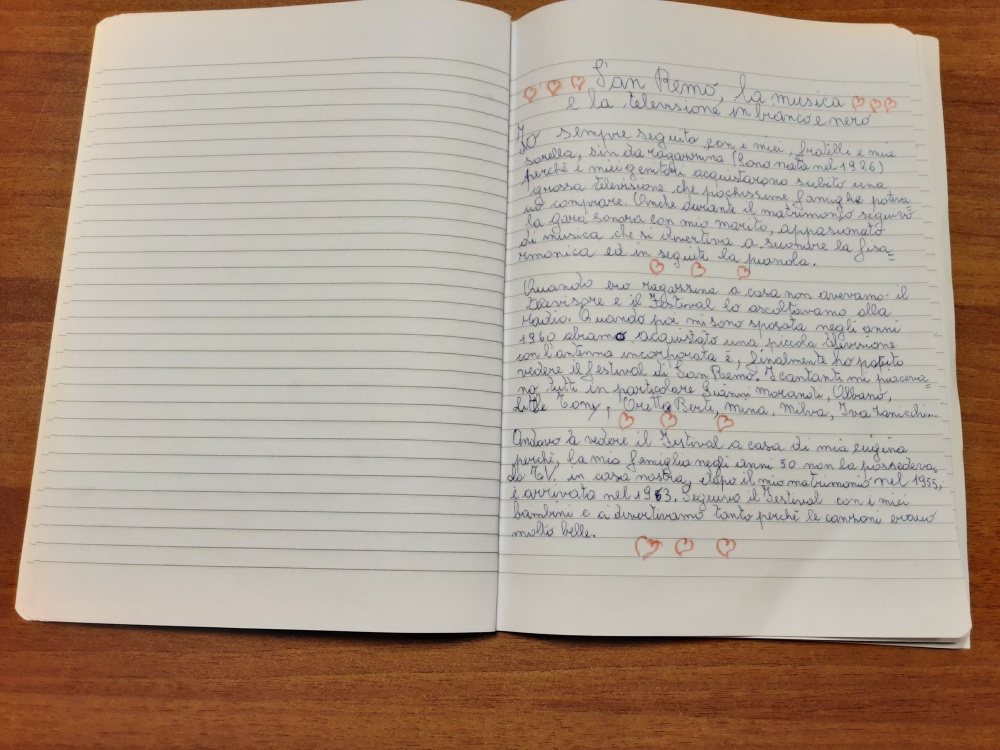 San Remo, la musica
e la televisione in bianco e nero
Ho sempre seguito con i miei, fratelli e mia
sorella, sin da ragazzina (sono nata nel 1926)
perché i miei genitori acquistarono subito una
grossa televisione che pochissime famiglie poteva=
no comprare. Anche durante il matrimonio seguivo
la gara sonora con mio marito, appasionato
di musica che si divertiva a suonare la fisa=
rmonica ed in seguito la pianola.
Quando ero ragazzina a casa non avevamo il
televisore e il Festival lo ascoltavamo alla
radio. Quando poi mi sono sposata negli anni
1960 abbiamo acquistato una piccola televisione
con l'antenna incorporata e, finalmente ho potuto
vedere il festival di San Remo. I cantanti mi piaceva=
no tutti in particolare Gianni Morandi, Albano,
Little Tony, Oretta Berti, Mina, Milva, Iva Zanicchi...
Andavo a vedere il Festival a casa di mia cugina
perché, la mia famiglia negli anni 50 non la possedeva,
la T.V. in casa nostra, dopo il mio matrimonio nel 1955,
è arrivata nel 1963. Seguivo il Festival con i miei
bambini e ci divertivamo tanto perché le canzoni erano
molto belle.